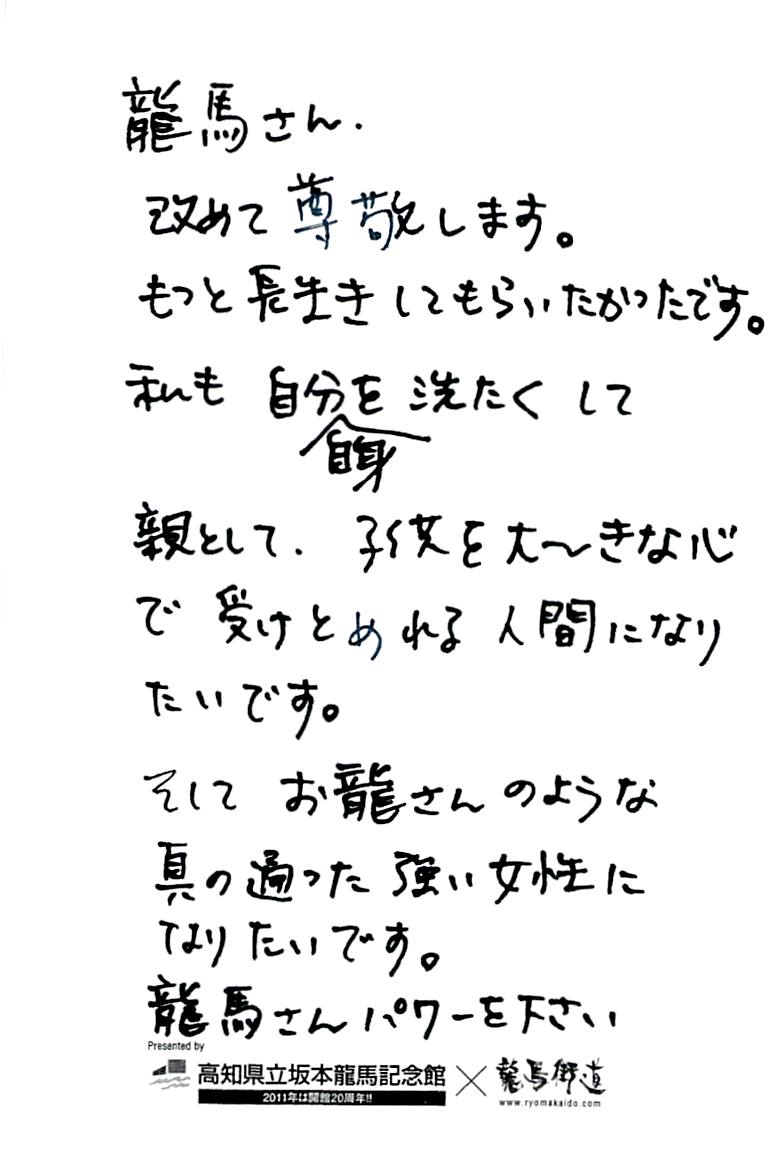 龍馬さん.
改めて尊敬します。
もっと長生きしてもらいたかったです。
私も 自分を 洗たくして
自身
親として、子供を大〜きな心
で 受けとめれる 人間になり
たいです。
そして お龍さんのような
真の通った 強い女性に
なりたいです。
龍馬さんパワーを下さい
Presented by
高知県立坂本龍馬記念館 × 龍馬街道
2011年は開館20周年!!
www.ryomakaido.com